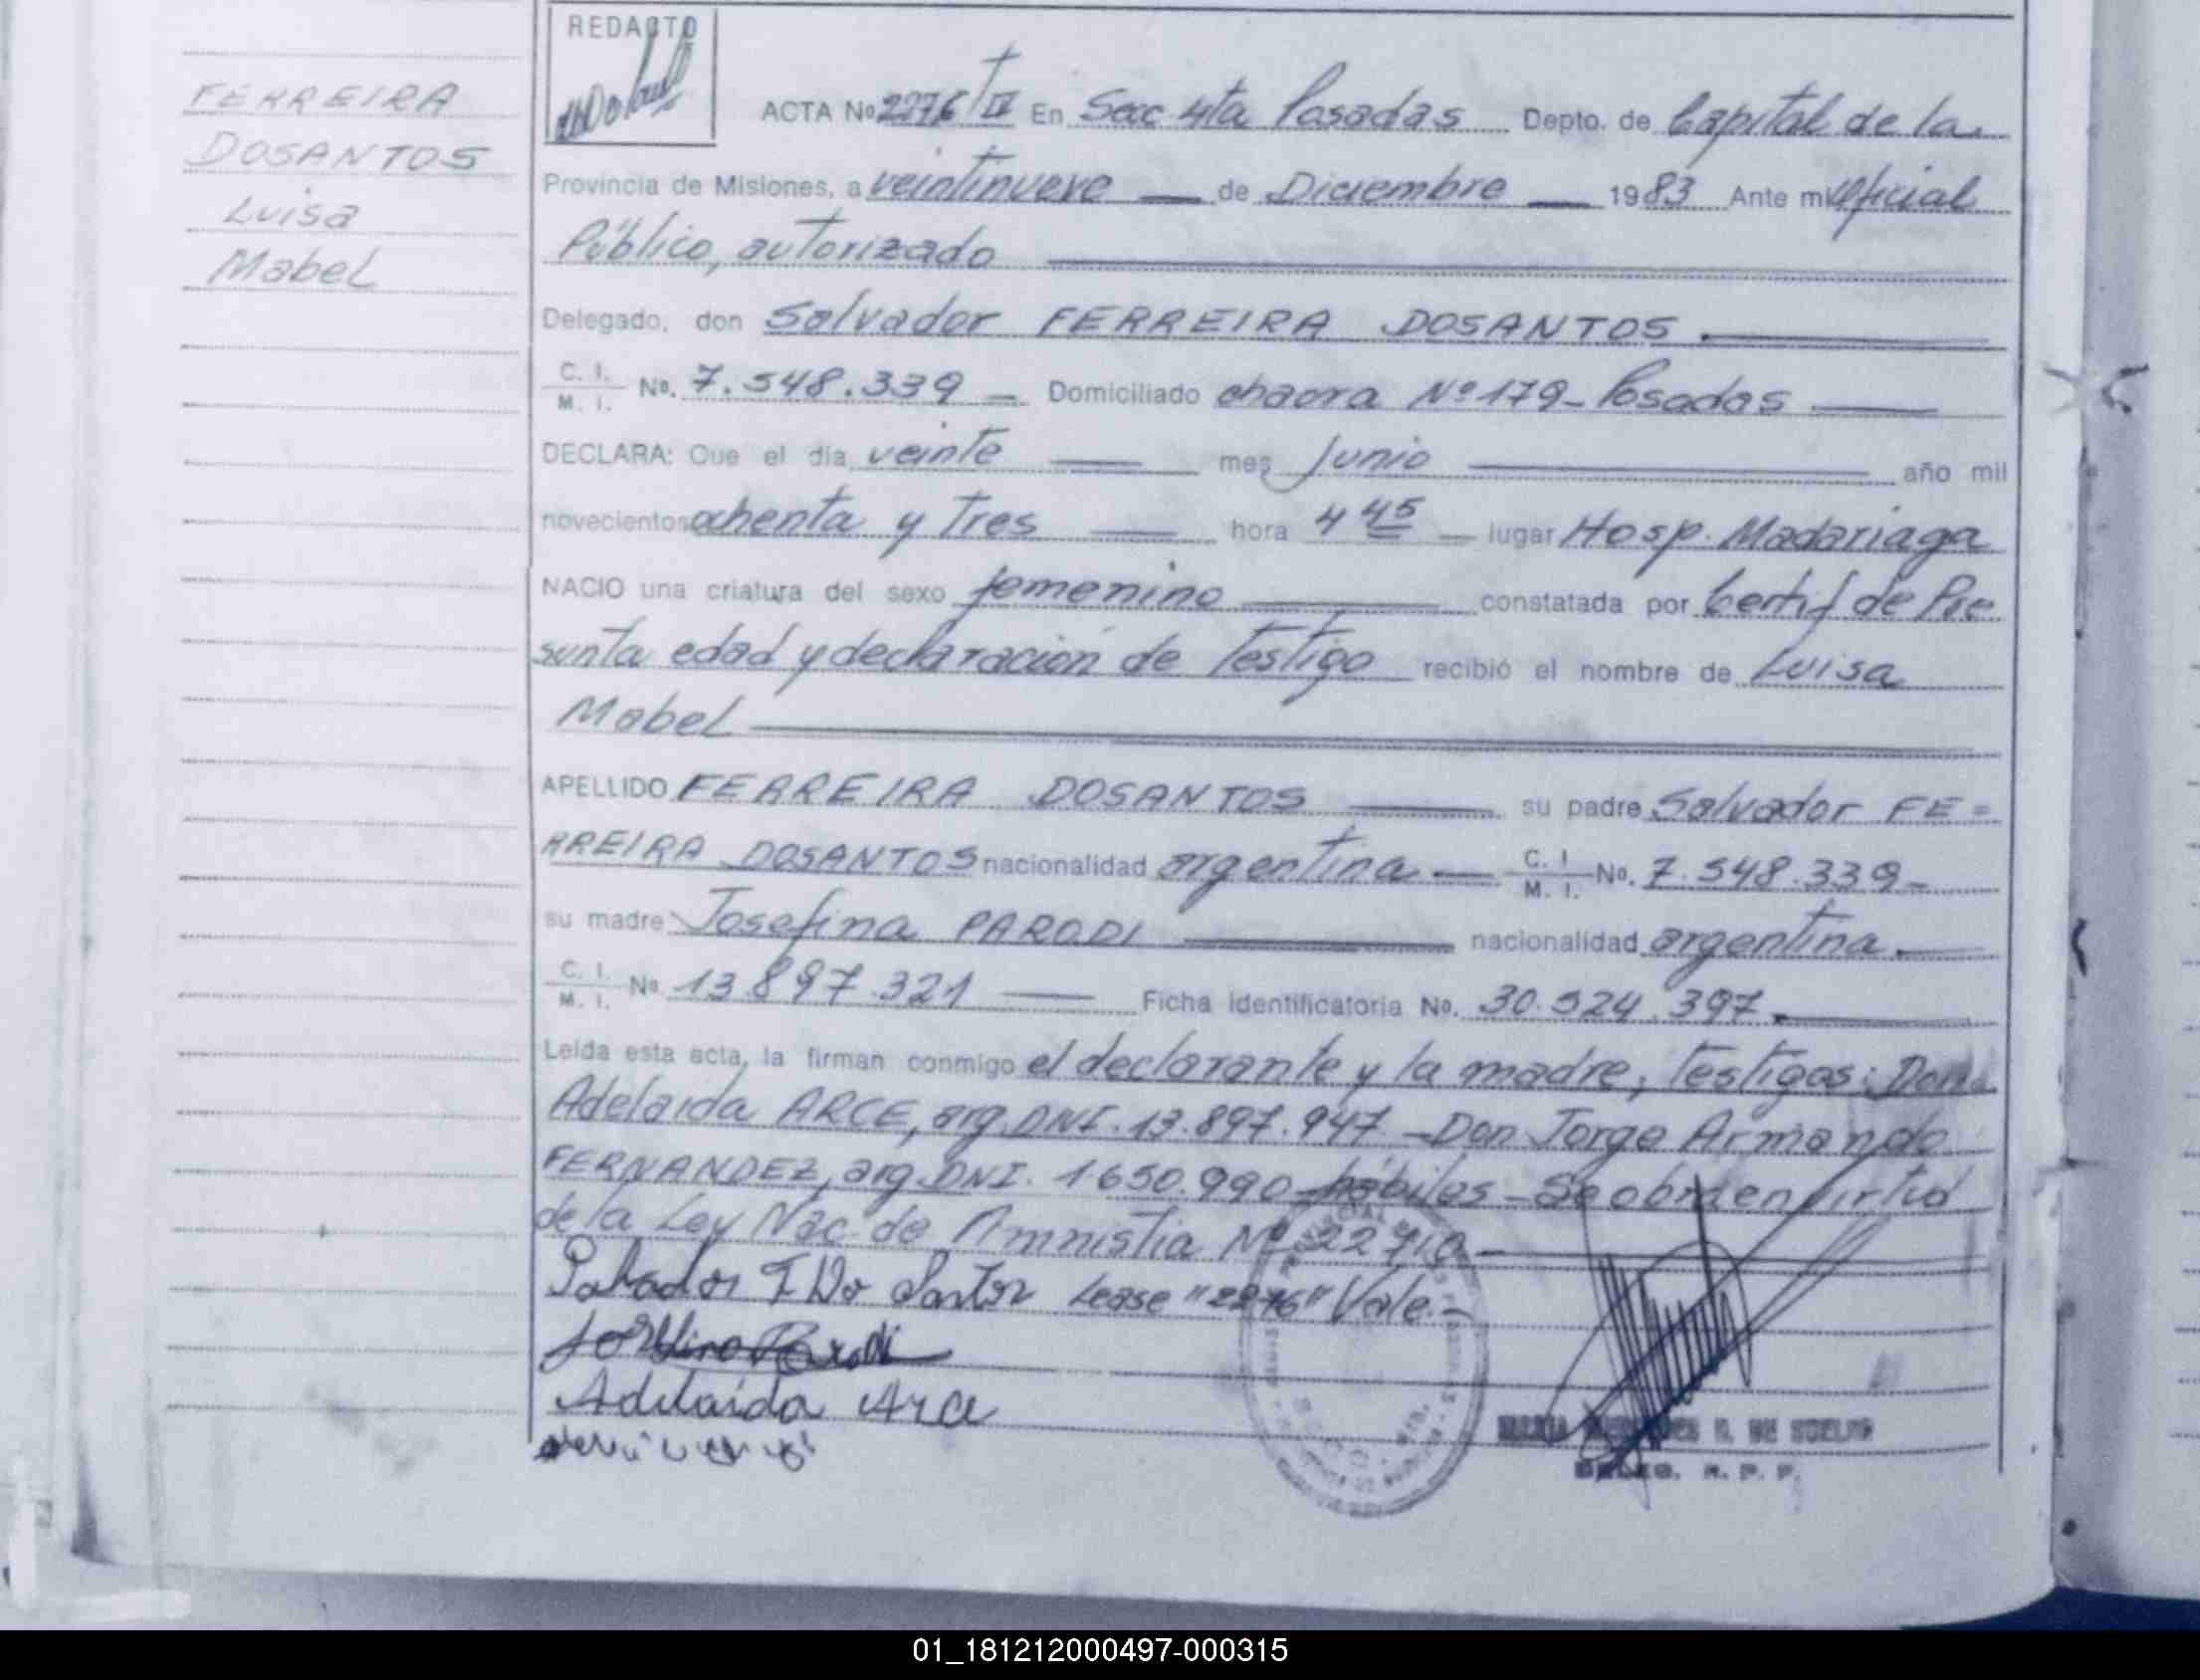 REDACTO
FERREIRA
DOSANTOS
Luisa
Mabel
ACTA No 2276/IV En Secc 4ta Posadas Depto. de Capital de la
Provincia de Misiones, a veintinueve de Diciembre 1983 Ante mi Oficial
Público, autorizado
Delegado, don Salvador FERREIRA DOSANTOS
C. I. / M. I. No. 7.548.339 Domiciliado chacra Nº 179 - Posadas
DECLARA: Que el día veinte mes Junio año mil
novecientos ochenta y Tres hora 4 45 lugar Hosp. Madariaga
NACIO una criatura del sexo femenino constatada por Certif de Pre
sunta edad y declaración de Testigo recibió el nombre de Luisa
Mabel
APELLIDO FERREIRA DOSANTOS su padre Salvador FE=
RREIRA DOSANTOS nacionalidad argentina C. I. / M. I. No. 7.548.339-
su madre Josefina PARODI nacionalidad argentina.
C. I. / M. I. No. 13.897.321 Ficha Identificatoria No. 30.524.397.
Leída esta acta, la firman conmigo el declarante y la madre, Testigos: Doña
Adelaida ARCE, arg. DNI. 13.897.947 - Don Jorge Armando
FERNANDEZ, arg. DNI. 1650.990 - hábiles - Se obra en virtud
de la Ley Nac. de Amnistia Nº
Salvador F Do Santos Lease "2276" Vale.-
Josefina Parodi
Adelaida Arce
DE
DELEG. R. P. P.
01_181212000497-000315